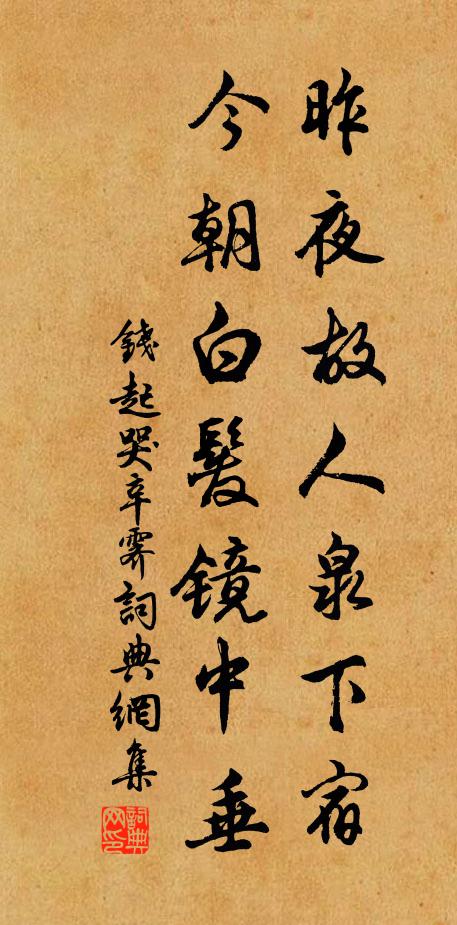 昨夜故人泉下宿
今朝白髮鏡中垂
錢起哭辛霽詞典網集
詞典網印